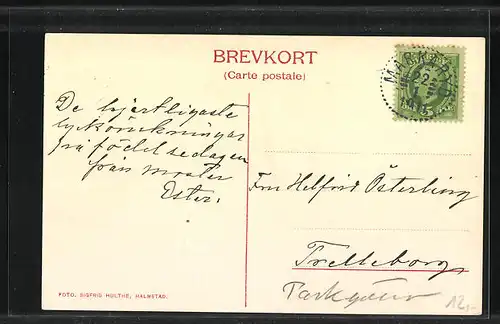 BREVKORT
(Carte postale)
De hjertligaste
lyckönskningar
på födelsedagen
från moster
Ester.
Fru Helfrid Österling
Trelleborg
FOTO. SIGFRID HOLTHE, HALMSTAD.
12,-